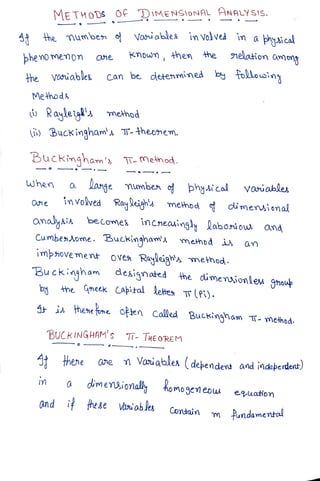 METHODS OF DIMENSIONAL ANALYSIS.
If the number of variables involved in a physical
phenomenon are known, then the relation among
the variables can be determined by following
Methods
(i) Rayleigh's method
(ii) Buckingham's π-theorem.
Buckingham's π-method.
When a large number of physical variables
are involved Rayleigh's method of dimensional
analysis becomes increasingly laborious and
Cumbersome. Buckingham's method is an
improvement over Rayleigh's method.
Buckingham designated the dimensionless group
by the Greek Capital letter π (Pi).
It is therefore often called Buckingham π-method.
BUCKINGHAM'S π-THEOREM
If there are n Variables (dependent and independent)
in a dimensionally homogeneous equation
and if these variables Contain m fundamental